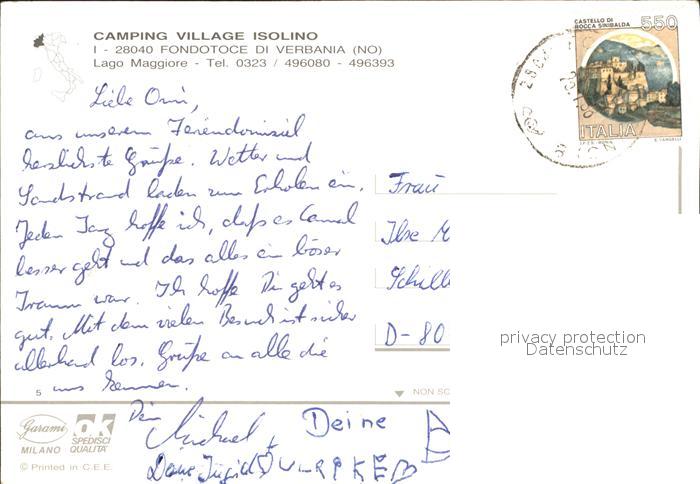 CAMPING VILLAGE ISOLINO
I - 28040 FONDOTOCE DI VERBANIA (NO)
Lago Maggiore - Tel. 0323 / 496080 - 496393
CASTELLO DI
ROCCA SINIBALDA
550
ITALIA
Liebe Omi,
aus unserem Feriendomizil
herzlichste Grüße. Wetter und
Sandstrand laden zum Erholen ein.
Jeden Tag hoffe ich, daß es
besser geht und das alles ein böser
Traum war. Ich hoffe Dir geht es
gut. Mit dem vielen Besuch ist sicher
allerhand los. Grüße an alle die
uns kennen.
Dein
Michael,
Deine Ingrid
Deine
ULRIKE
Frau
Ilse M
Schill
D-80
privacy protection
Datenschutz
5
NON SC
Garami
MILANO
ok
SPEDISCI
QUALITA'
© Printed in C.E.E.